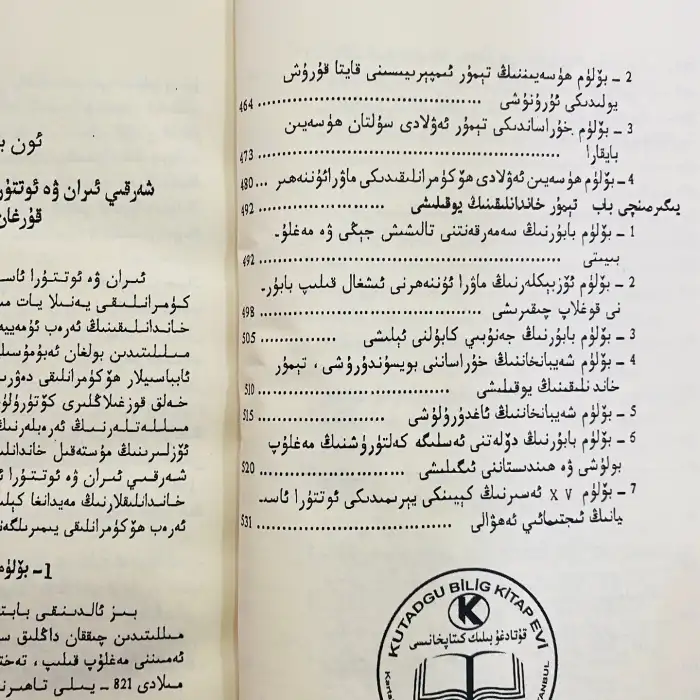 2 – بۆلۈم ھۈسەيىننىڭ تېمۇر ئىمپېرىيىسىنى قايتا قۇرۇش
يولىدىكى ئۇرۇنۇشى ........ 464
3 – بۆلۈم خۇراساندىكى تېمۇر ئەۋلادى سۇلتان ھۈسەيىن
بايقارا ........ 473
4 – بۆلۈم ھۈسەيىن ئەۋلادى ھۆكۈمرانلىقىدىكى ماۋرائۇننەھىر ... 480
يىگىرمىنچى باب تېمۇر خاندانلىقىنىڭ يوقىلىشى ........ 492
1 – بۆلۈم بابۇرنىڭ سەمەرقەنتنى تالىشىش جېڭى ۋە مەغلۇ-
بىيىتى ........ 492
2 – بۆلۈم ئۆزبېكلەرنىڭ ماۋرا ئۇننەھرنى ئىشغال قىلىپ بابۇر-
نى قوغلاپ چىقىرىشى ........ 498
3 – بۆلۈم بابۇرنىڭ جەنۇبىي كابۇلنى ئېلىشى ........ 505
4 – بۆلۈم شەيبانخاننىڭ خۇراساننى بويسۇندۇرۇشى ، تېمۇر
خاندنلىقنىڭ يوقىلىشى ........ 510
5 – بۆلۈم شەيبانخاننىڭ ئاغدۇرۇلۇشى ........ 515
6 – بۆلۈم بابۇرنىڭ دۆلەتنى ئەسلىگە كەلتۈرۈشنىڭ مەغلۇپ
بولۇشى ۋە ھىندىستاننى ئىگىلىشى ........ 520
7 – بۆلۈم XV ئەسىرنىڭ كېيىنكى يېرىمىدىكى ئوتتۇرا ئاسى-
يانىڭ ئىجتىمائىي ئەھۋالى ........ 531
KUTADGU BİLİG KİTAP EVİ
K
قۇتادغۇ بىلىك كىتاپخانىسى
ئون
شەرقىي ئىران ۋە ئوتتۇر
قۇرغان
ئىران ۋە ئوتتۇرا ئاس
كۈمرانلىقى يەنىلا يات
خاندانلىقىنىڭ ئەرەب ئۇمەييە
مىللىتىدىن بولغان ئەبۇمۇسل
ئابباسىيلار ھۆكۈمرانلىقى دەۋر
خەلق قوزغىلاڭلىرى كۆتۈرۈلۈ
مىللەتلەرنىڭ ئەرەبلەرنىڭ
ئۆزلىرىنىڭ مۇستەقىل خاندانل
شەرقىي ئىران ۋە ئوتتۇرا ئ
خاندانلىقلارنىڭ مەيدانغا كېل
ئەرەب ھۆكۈمرانلىقى يىمىرىلگەن
1 – بۆلۈم
بىز ئالدىنقى بابت
مىللىتىدىن چىققان داڭلىق س
ئەمىننى مەغلۇپ قىلىپ ، تەخت
مىلادى 821 – يىلى تاھىر